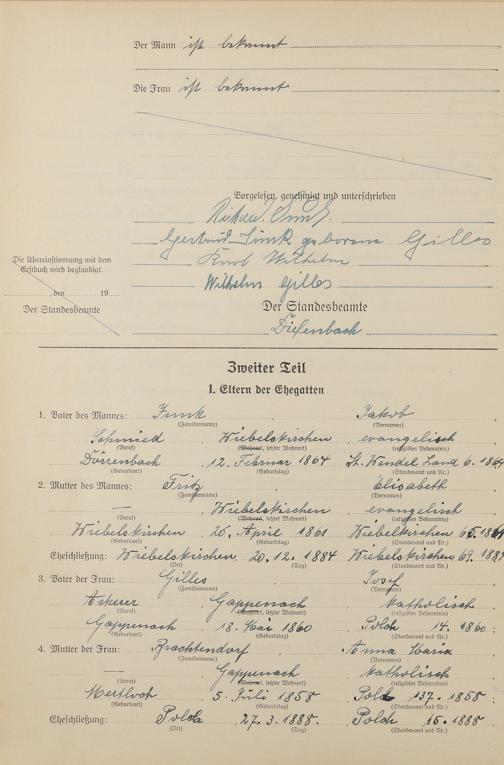 Der Mann ist bekannt
Die Frau ist bekannt
Vorgelesen, genehmigt und unterschrieben
Gertrud Funk geborene Gilles
Wilhelm
Wilhelm Gilles
Die Übereinstimmung mit dem
Erstbuch wird beglaubigt.
, den 19
Der Standesbeamte
Der Standesbeamte
Diefenbach
Zweiter Teil
I. Eltern der Ehegatten
1. Vater des Mannes: Funk Jakob
(Familienname) (Vornamen)
Schmied Wiebelskirchen evangelisch
(Beruf) (Wohnort, letzter Wohnort) (religiöses Bekenntnis)
Dörrenbach 12. Februar 1864 St. Wendel Land 6. 1864
(Geburtsort) (Geburtstag) (Standesamt und Nr.)
2. Mutter des Mannes: Fritz Elisabeth
(Familienname) (Vornamen)
— Wiebelskirchen evangelisch
(Beruf) (Wohnort, letzter Wohnort) (religiöses Bekenntnis)
Wiebelskirchen 26. April 1861 Wiebelskirchen
(Geburtsort) (Geburtstag) (Standesamt und Nr.)
Eheschließung: Wiebelskirchen 20.12. 1884 Wiebelskirchen 69.
(Ort) (Tag) (Standesamt und Nr.)
3. Vater der Frau: Gilles Josef
(Familienname) (Vornamen)
Ackerer Gappenach katholisch
(Beruf) (Wohnort, letzter Wohnort) (religiöses Bekenntnis)
Gappenach 18. Mai 1860 Polch 14. 1860
(Geburtsort) (Geburtstag) (Standesamt und Nr.)
4. Mutter der Frau: Brachtendorf Anna Maria
(Familienname) (Vornamen)
— Gappenach katholisch
(Beruf) (Wohnort, letzter Wohnort) (religiöses Bekenntnis)
Mertloch 5. Juli 1858 Polch 137. 1858
(Geburtsort) (Geburtstag) (Standesamt und Nr.)
Eheschließung: Polch 27. 3. 1888. Polch 15. 1888
(Ort) (Tag) (Standesamt und Nr.)